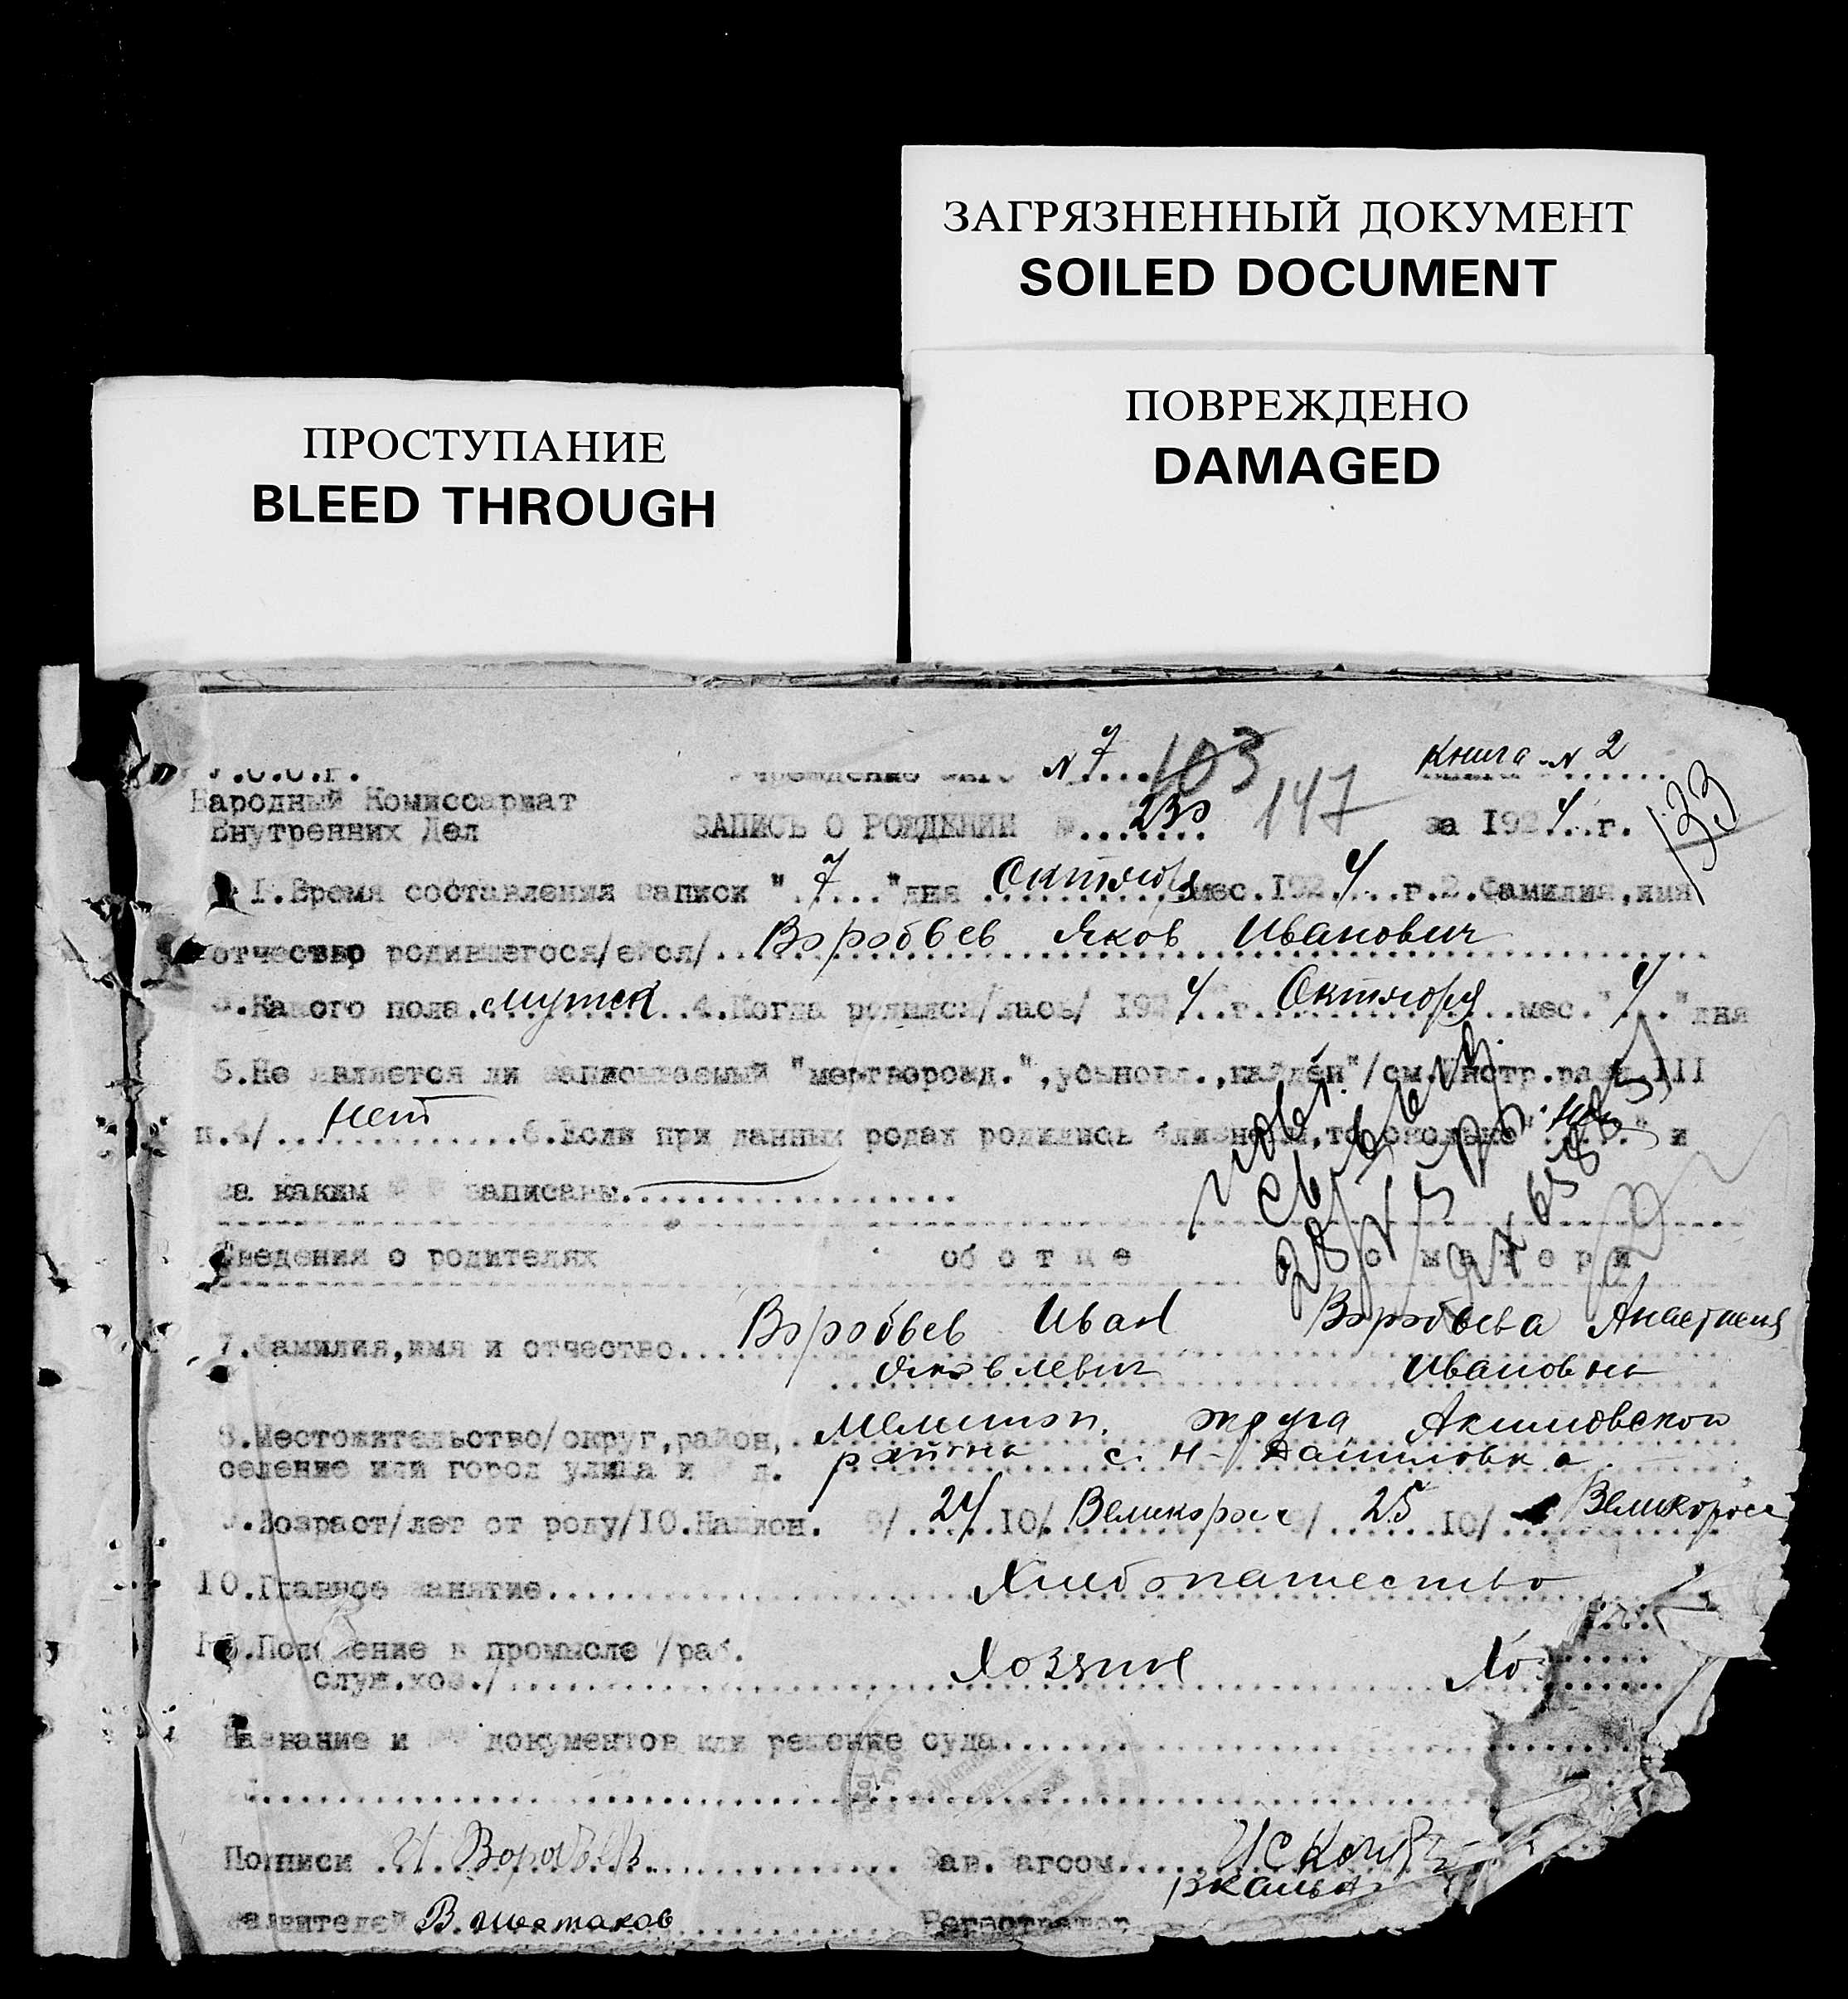 ЗАГРЯЗНЕННЫЙ ДОКУМЕНТ
SOILED DOCUMENT
ПОВРЕЖДЕНО
DAMAGED
ПРОСТУПАНИЕ
BLEED THROUGH
N 7 103 Книга N 2
Народный Комиссариат
Внутренних Дел ЗАПИСЬ О РОЖДЕНИИ № 230 147 за 1924 г. 133
1.Время составления записи "7" дня Октября мес.1924 г.2.Фамилия,имя
отчество родившегося/ейся/ Воробьев Яков Иванович
3.Какого пола мужск 4.Когда родился/лась/ 1924 г. Октября мес."4" дня
5.Не является ли записываемый "мертворожд.",усыновл.,найден"/см.Инстр.разд.III
п.4/ нет 6.Если при данных родах родились близнецы,то сколько " " и
за каким № № записаны
Сведения о родителях об отце о матери
7.Фамилия,имя и отчество Воробьев Иван Воробьева Анастасия
Яковлевич Ивановна
8.Местожительство/округ,район, Мелитоп. округа Акимовской
селение или город улица и № д. района с. Н-Даниловка
9.Возраст/лет от роду/10.Национ. 9/ 24 10/ Великоросс 9/ 25 10/ Великоросс
10.Главное занятие Хлебопашество
Положение в промысле /раб.
служ.хоз./ Хозяин Хоз
Название и №№ документов или решение суда
Потписи И. Воробьев Зав.Загсом
заявителей В. Шестаков Регистратор